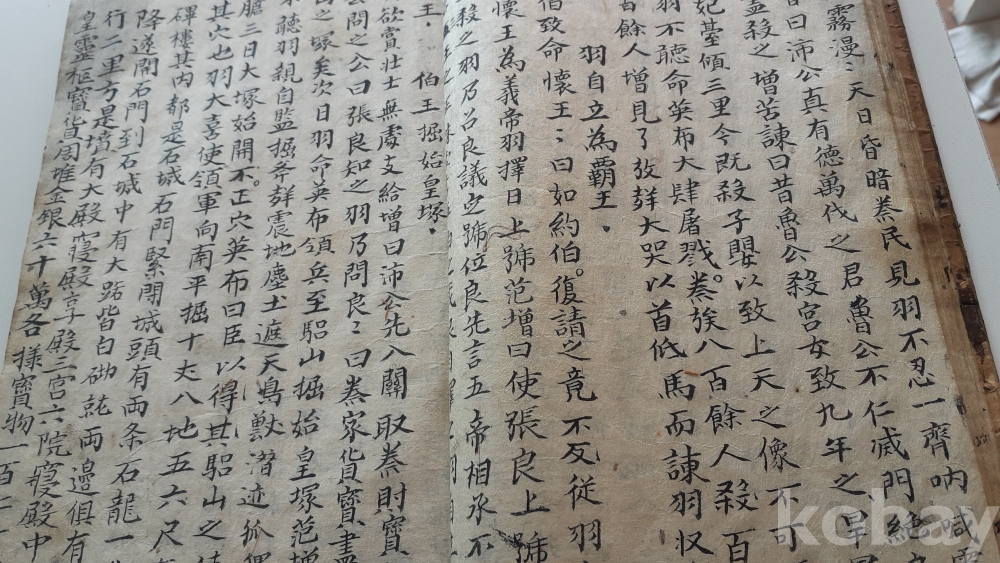 霧漫〻天日昏暗秦民見羽不忍一齊吶喊
皆曰沛公真有德萬代之君魯公不仁滅門絕
盡殺之增苦諫曰昔魯公殺宮女致九年之旱
妃臺傾三里今既殺子嬰以致上天之像不可
羽不聽命英布大肆屠戮秦族八百餘人殺百
百餘人增見了放群大哭以首低馬而諫羽収
羽自立為霸王
伯致命懷王〻曰如約伯復請之竟不反從羽
懷王為義帝羽擇日上號范增曰使張良上號
殺之羽乃召良議立號位良先言五帝相承不
王
伯王掘始皇塚
欲賞壮士無處支給增曰沛公先入關取秦財寶
去問之公曰張良知之羽乃問良〻曰秦家貨寶盡
之塚矣次日羽命英布領兵至驪山掘始皇塚范增
不聽羽親自監掘斧群震地塵土遮天鳥獸潛迹狐狸
膽三日大塚始開不正穴英布曰臣以得其驪山之
其穴也羽大喜使領軍向南平掘十丈八地五六尺
碑樓其内都是石城石門緊閉城頭有両条石龍一
降遂開石門到石城中有大路皆白砌就両邊俱有
行二里方是墳有大殿寢殿享殿三宮六院寢殿中
皇靈柩寶貨周堆金銀六十萬各樣寶物一百二
kobay